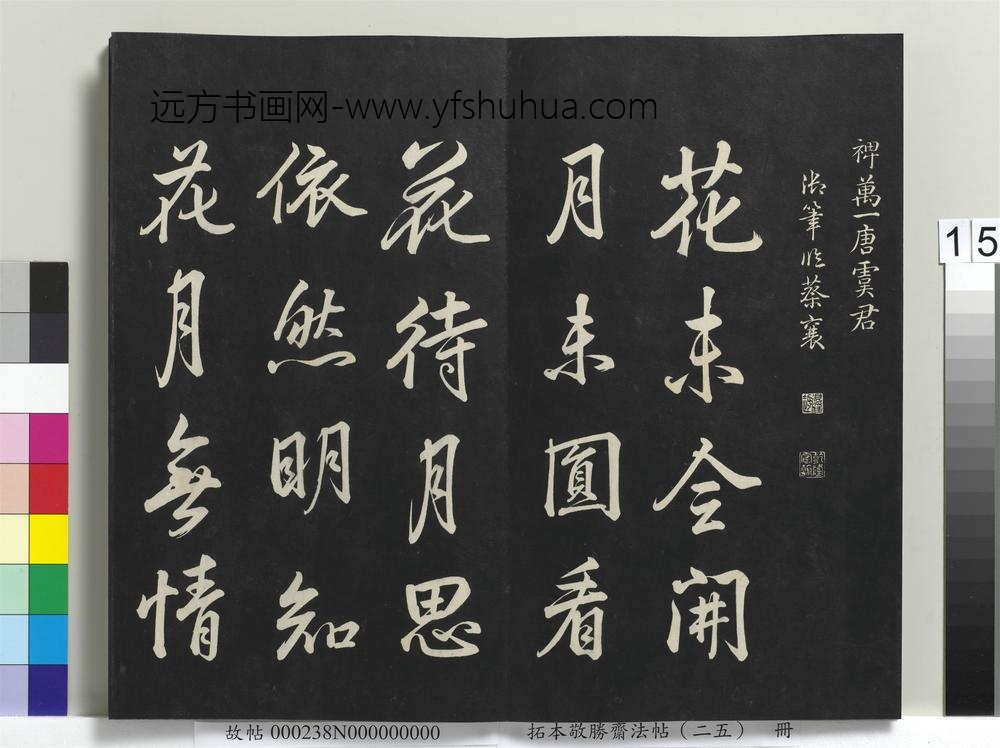 远方书画网-www.yfshuhua.com
裨萬一唐虞君
御筆臨蔡襄
花未全開
月未圓看
花待月思
依然明知
花月無情
15
故帖 000238N000000000
拓本敬勝齋法帖（二五） 冊